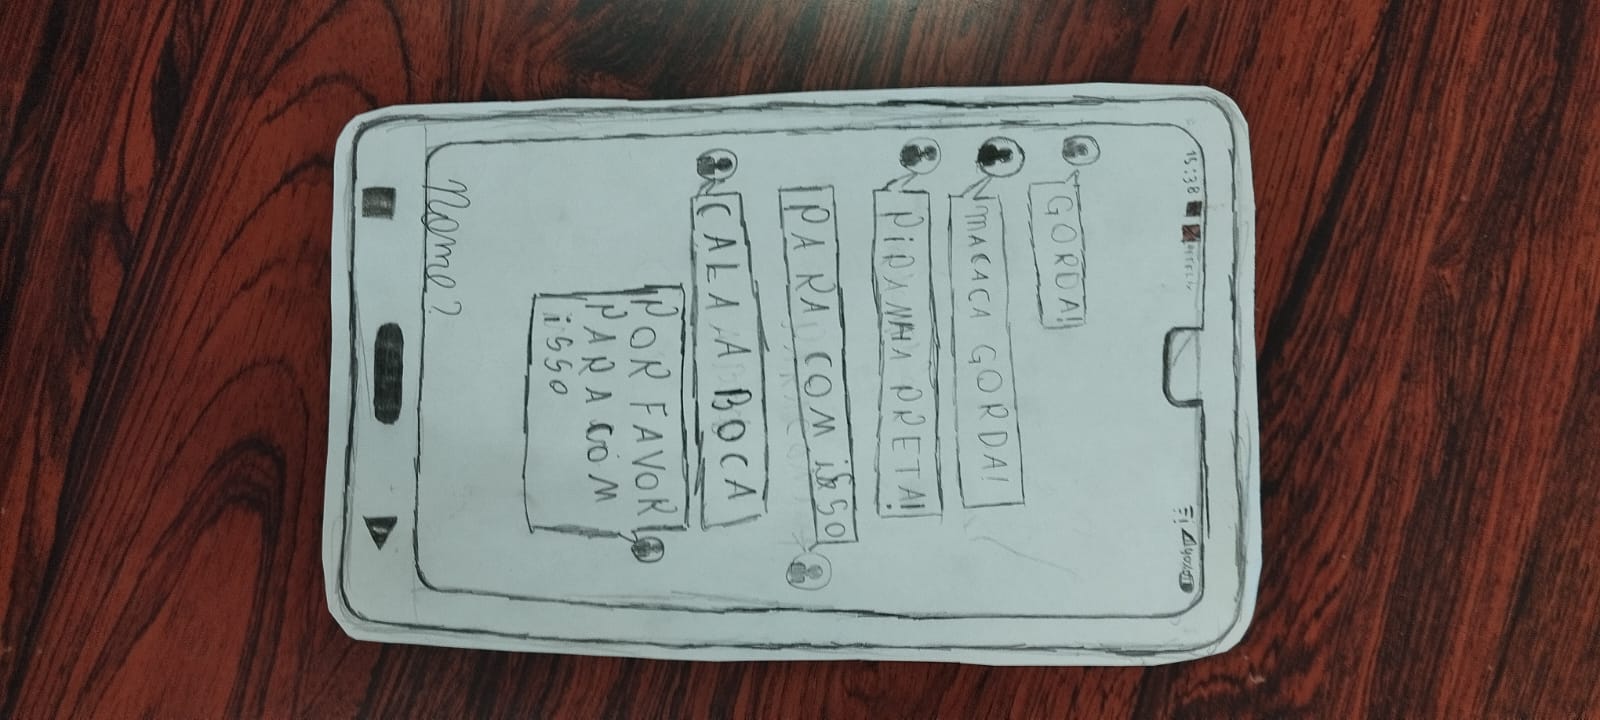 15:38
90%
GORDA!
MACACA GORDA!
PIRANHA PRETA!
PARA COM ISSO
CALA A BOCA
POR FAVOR
PARA COM
ISSO
Nome?